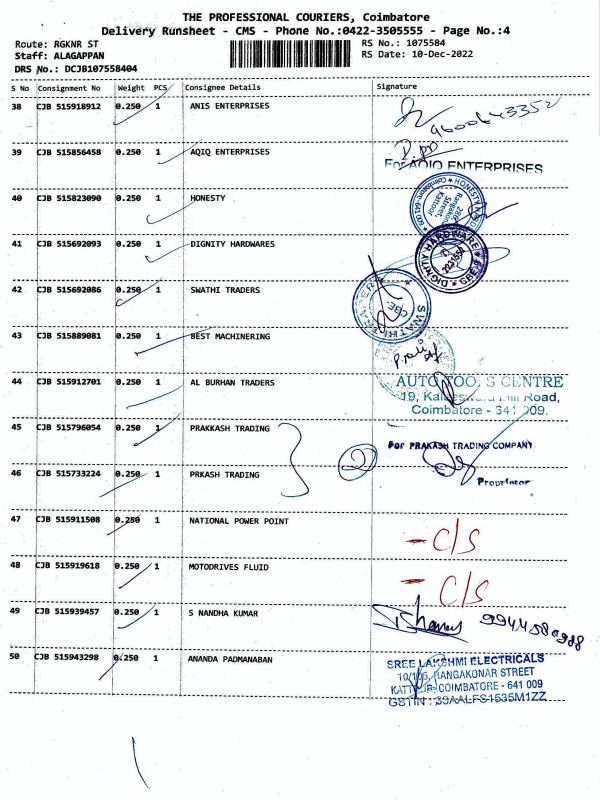 THE PROFESSIONAL COURIERS, Coimbatore
Delivery Runsheet - CMS - Phone No.:0422-3505555 - Page No.:4
Route: RGKNR ST
RS No.: 1075584
Staff: ALAGAPPAN
RS Date: 10-Dec-2022
DRS No.: DCJB107558404
S No Consignment No Weight PCS Consignee Details Signature
38 CJB 515918912 0.250 1 ANIS ENTERPRISES
9600643352
39 CJB 515856458 0.250 1 AQIQ ENTERPRISES
For AQIQ ENTERPRISES
40 CJB 515823090 0.250 1 HONESTY
41 CJB 515692093 0.250 1 DIGNITY HARDWARES
DIGNITY HARDWARE
42 CJB 515692086 0.250 1 SWATHI TRADERS
SWATHI TRADERS
CBE
43 CJB 515889081 1 BEST MACHINERING
44 CJB 515912701 0.250 1 AL BURHAN TRADERS
AUTO TOOLS CENTRE
19, Road,
Coimbatore - 641 009.
45 CJB 515796054 0.250 1 PRAKKASH TRADING
For PRAKASH TRADING COMPANY
2
46 CJB 515733224 0.250 1 PRKASH TRADING
Proprietor
47 CJB 515911508 0.250 1 NATIONAL POWER POINT
- C/S
48 CJB 515919618 0.250 1 MOTODRIVES FLUID
- C/S
49 CJB 515939457 0.250 1 S NANDHA KUMAR
50 CJB 515943298 0.250 1 ANANDA PADMANABAN
SREE LAKSHMI ELECTRICALS
10/106, RANGAKONAR STREET
KATTOOR, COIMBATORE - 641 009
GSTIN : 33AALFS1535M1ZZ